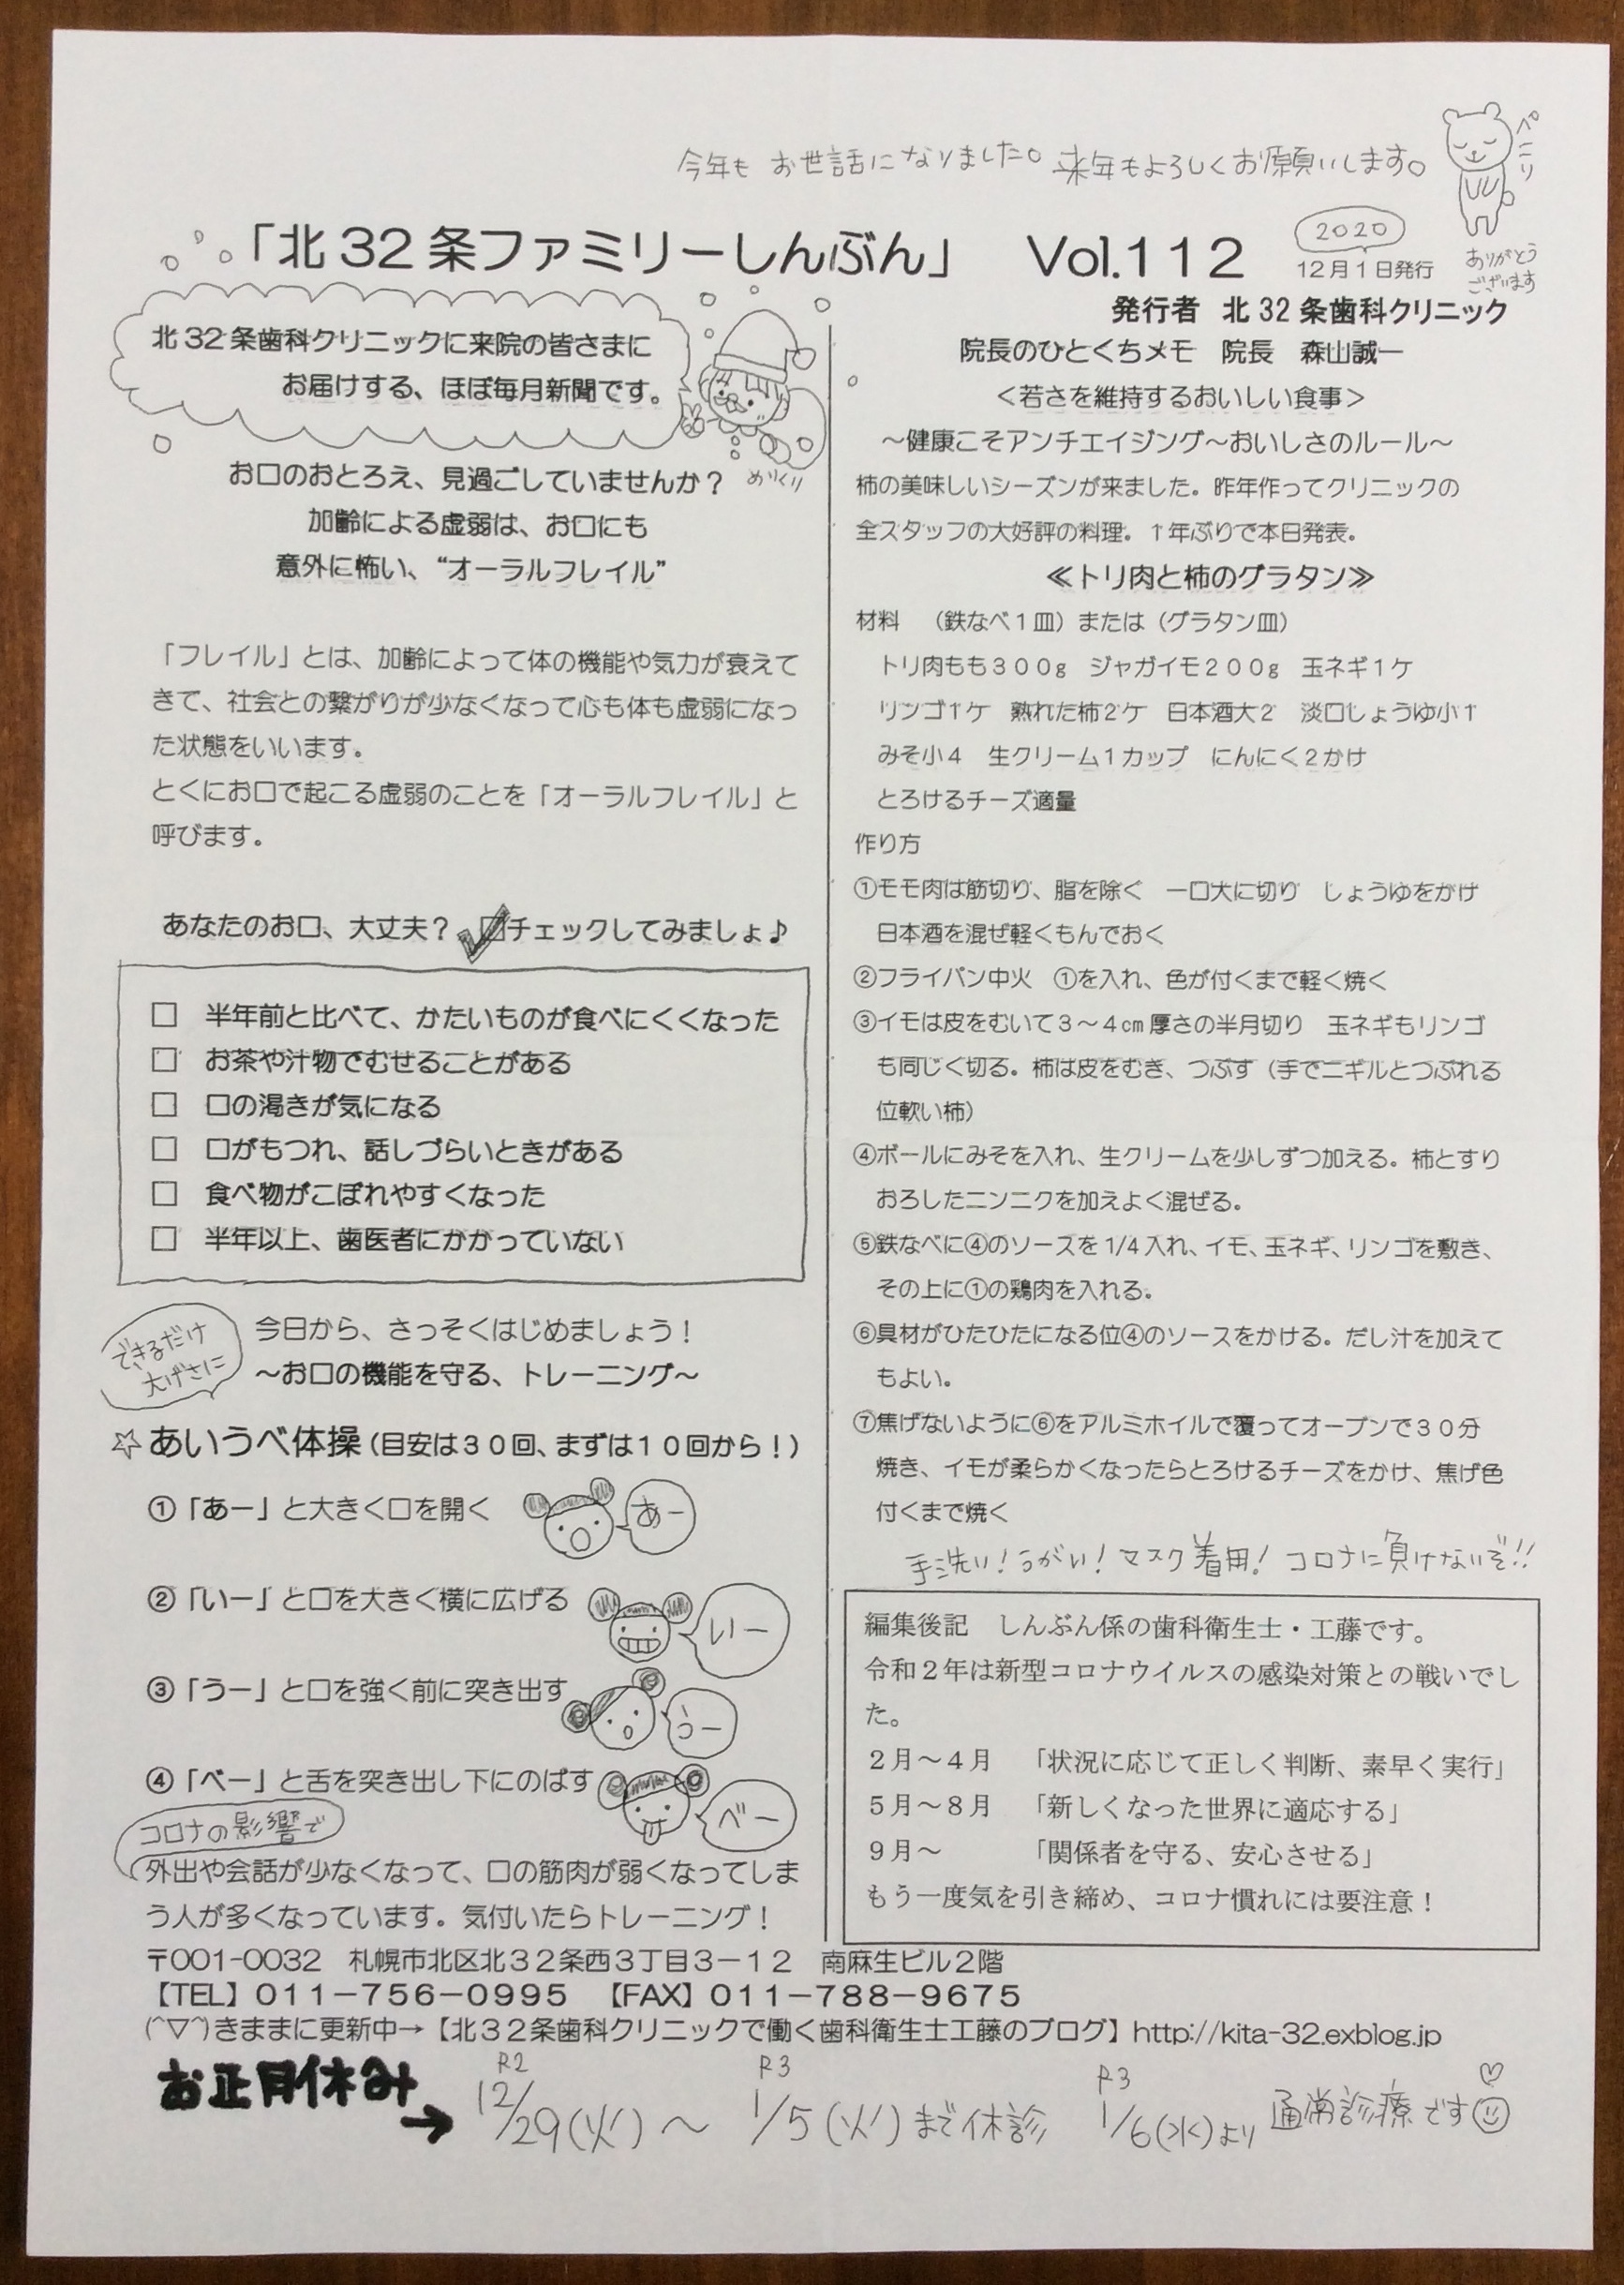 今年も お世話になりました。来年もよろしくお願いします。
ペこり
「北32条ファミリーしんぶん」 Vol.112
2020
12月1日発行
ありがとう
ございます
北32条歯科クリニックに来院の皆さまに
お届けする、ほぼ毎月新聞です。
めりくり
お口のおとろえ、見過ごしていませんか？
加齢による虚弱は、お口にも
意外に怖い、“オーラルフレイル”
「フレイル」とは、加齢によって体の機能や気力が衰えて
きて、社会との繋がりが少なくなって心も体も虚弱になっ
た状態をいいます。
とくにお口で起こる虚弱のことを「オーラルフレイル」と
呼びます。
あなたのお口、大丈夫？ ☑チェックしてみましょ♪
□ 半年前と比べて、かたいものが食べにくくなった
□ お茶や汁物でむせることがある
□ 口の渇きが気になる
□ 口がもつれ、話しづらいときがある
□ 食べ物がこぼれやすくなった
□ 半年以上、歯医者にかかっていない
できるだけ
大げさに
今日から、さっそくはじめましょう！
～お口の機能を守る、トレーニング～
☆あいうべ体操（目安は３０回、まずは１０回から！）
①「あー」と大きく口を開く
あー
②「いー」と口を大きく横に広げる
いー
③「うー」と口を強く前に突き出す
うー
④「べー」と舌を突き出し下にのばす
べー
コロナの影響で
外出や会話が少なくなって、口の筋肉が弱くなってしま
う人が多くなっています。気付いたらトレーニング！
発行者 北32条歯科クリニック
院長のひとくちメモ 院長 森山誠一
＜若さを維持するおいしい食事＞
～健康こそアンチエイジング～おいしさのルール～
柿の美味しいシーズンが来ました。昨年作ってクリニックの
全スタッフの大好評の料理。１年ぶりで本日発表。
≪トリ肉と柿のグラタン≫
材料 （鉄なべ１皿）または（グラタン皿）
トリ肉もも３００g ジャガイモ２００g 玉ネギ１ケ
リンゴ１ケ 熟れた柿２ケ 日本酒大２ 淡口しょうゆ小１
みそ小４ 生クリーム１カップ にんにく２かけ
とろけるチーズ適量
作り方
①モモ肉は筋切り、脂を除ぐ 一口大に切り しょうゆをかけ
日本酒を混ぜ軽くもんでおく
②フライパン中火 ①を入れ、色が付くまで軽く焼く
③イモは皮をむいて３～４㎝厚さの半月切り 玉ネギもリンゴ
も同じく切る。柿は皮をむき、つぶす（手でニギルとつぶれる
位軟い柿）
④ボールにみそを入れ、生クリームを少しずつ加える。柿とすり
おろしたニンニクを加えよく混ぜる。
⑤鉄なべに④のソースを1/4入れ、イモ、玉ネギ、リンゴを敷き、
その上に①の鶏肉を入れる。
⑥具材がひたひたになる位④のソースをかける。だし汁を加えて
もよい。
⑦焦げないように⑥をアルミホイルで覆ってオーブンで３０分
焼き、イモが柔らかくなったらとろけるチーズをかけ、焦げ色
付くまで焼く
手洗い！うがい！マスク着用！コロナに負けないぞ!!
編集後記 しんぶん係の歯科衛生士・工藤です。
令和２年は新型コロナウイルスの感染対策との戦いでし
た。
２月～４月 「状況に応じて正しく判断、素早く実行」
５月～８月 「新しくなった世界に適応する」
９月～ 「関係者を守る、安心させる」
もう一度気を引き締め、コロナ慣れには要注意！
〒001-0032 札幌市北区北３２条西３丁目３－１２ 南麻生ビル２階
【TEL】０１１－７５６－０９９５ 【FAX】０１１－７８８－９６７５
(^▽^)きままに更新中→【北３２条歯科クリニックで働く歯科衛生士工藤のブログ】http://kita-32.exblog.jp
お正月休み→ R2 12/29(火)～ R3 1/5(火)まで休診 R3 1/6(水)より 通常診療です